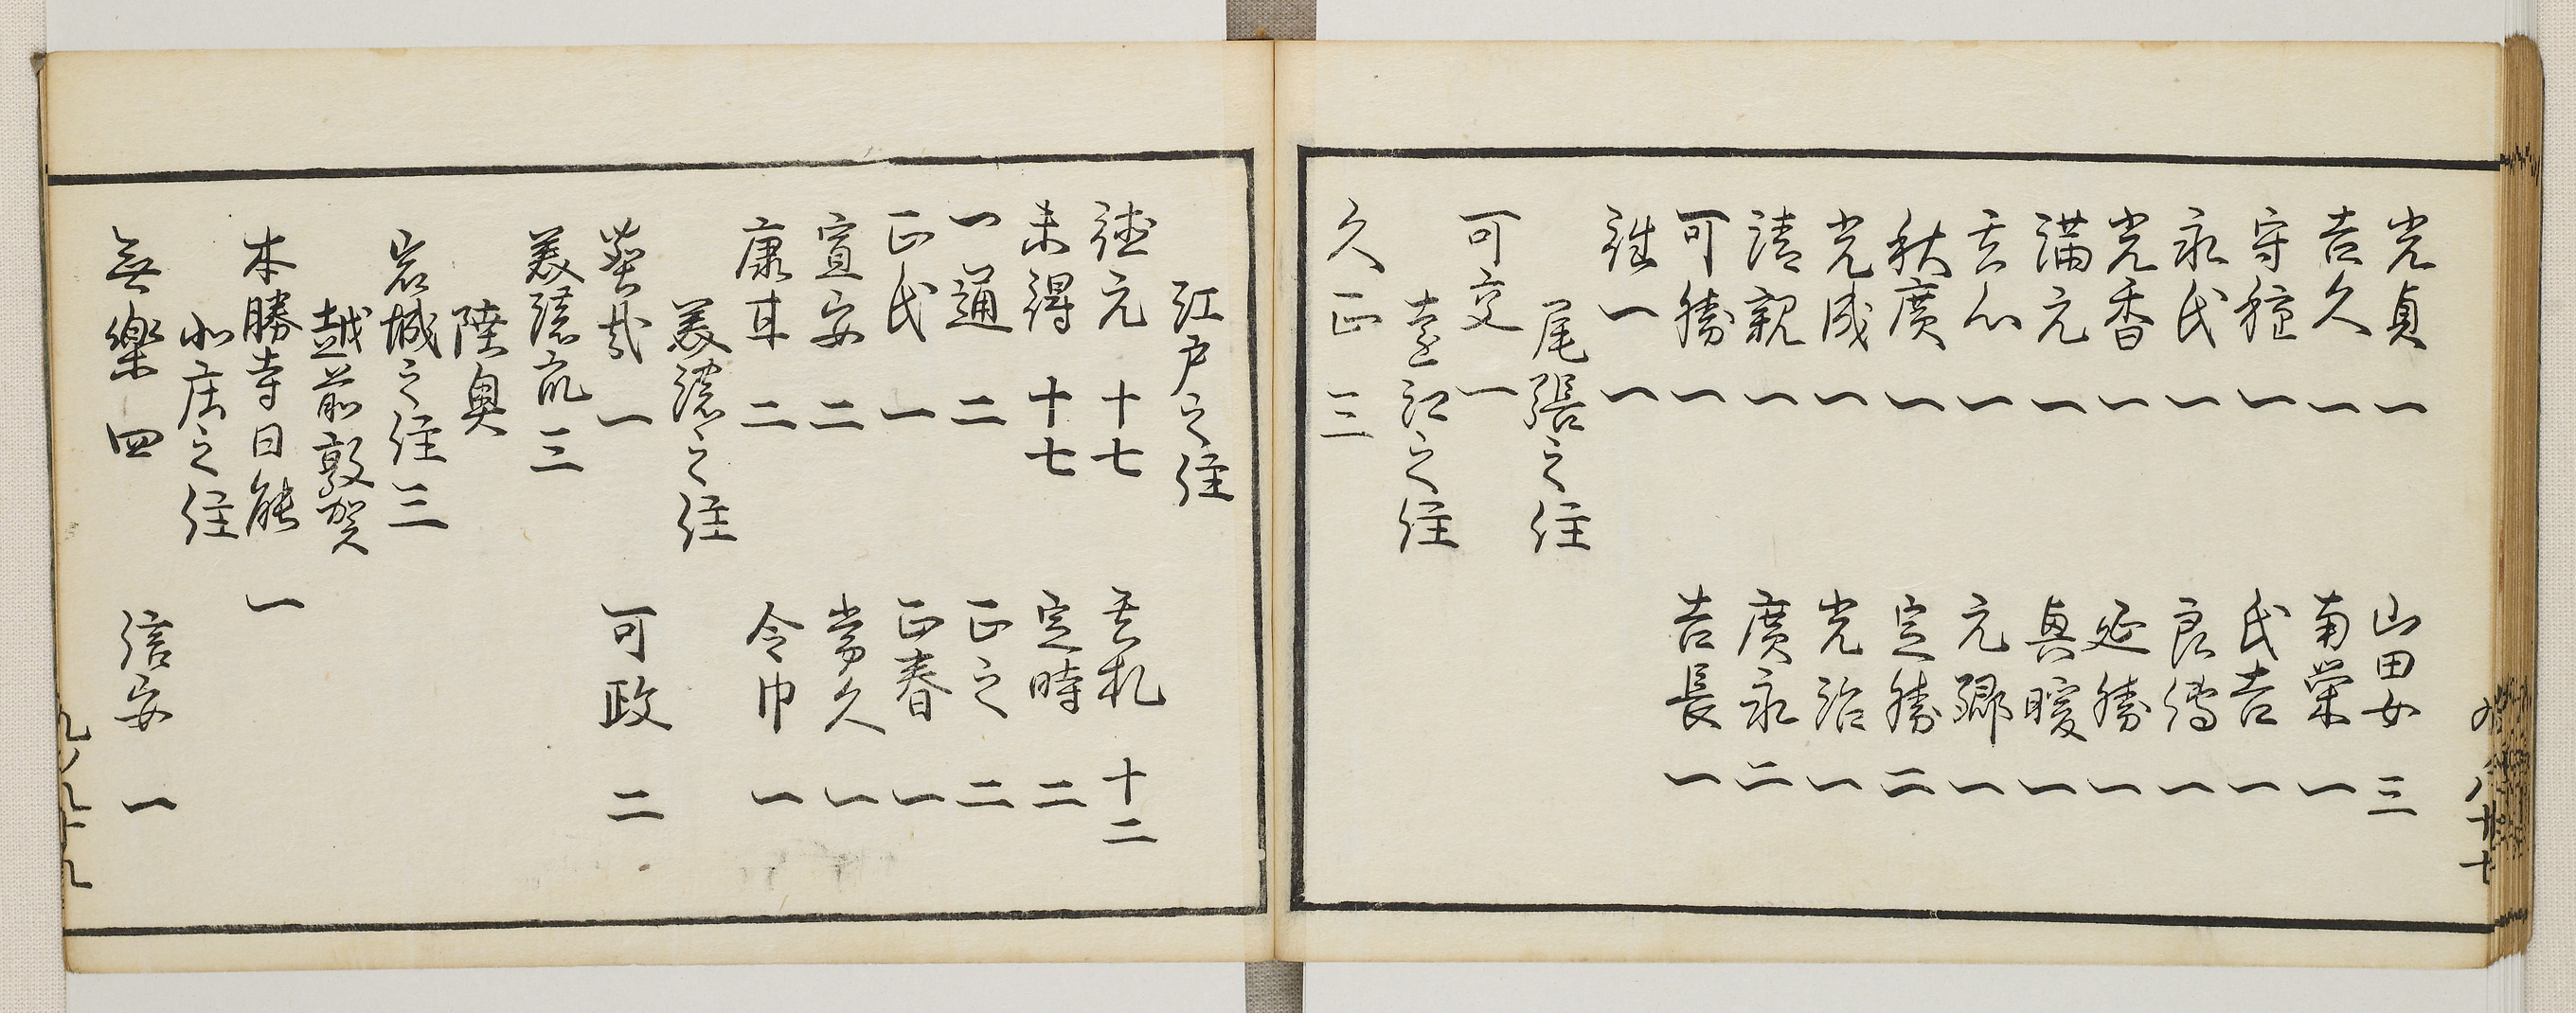 光貞 一 山田女 三
吉久 一 南榮 一
守種 一 氏吉 一
永氏 一 良傳 一
光香 一 延勝 一
満元 一 眞暖 一
玄心 一 元郷 一
秋廣 一 定勝 二
光成 一 光治 一
清親 一 廣永 二
可勝 一 吉長 一
継一 一
尾張之住
可交 一
遠江之住
久正 三
江戸之住
徳元 十七 玄札 十二
未得 十七 定時 二
一通 二 正之 二
正氏 一 正春 一
宣安 二 常久 一
康甘 二 令巾 一
美濃之住
一 可政 二
美濃 三
陸奥
岩城之住 三
越前敦賀
本勝寺日能 一
庄之住
無樂 四 信安 一